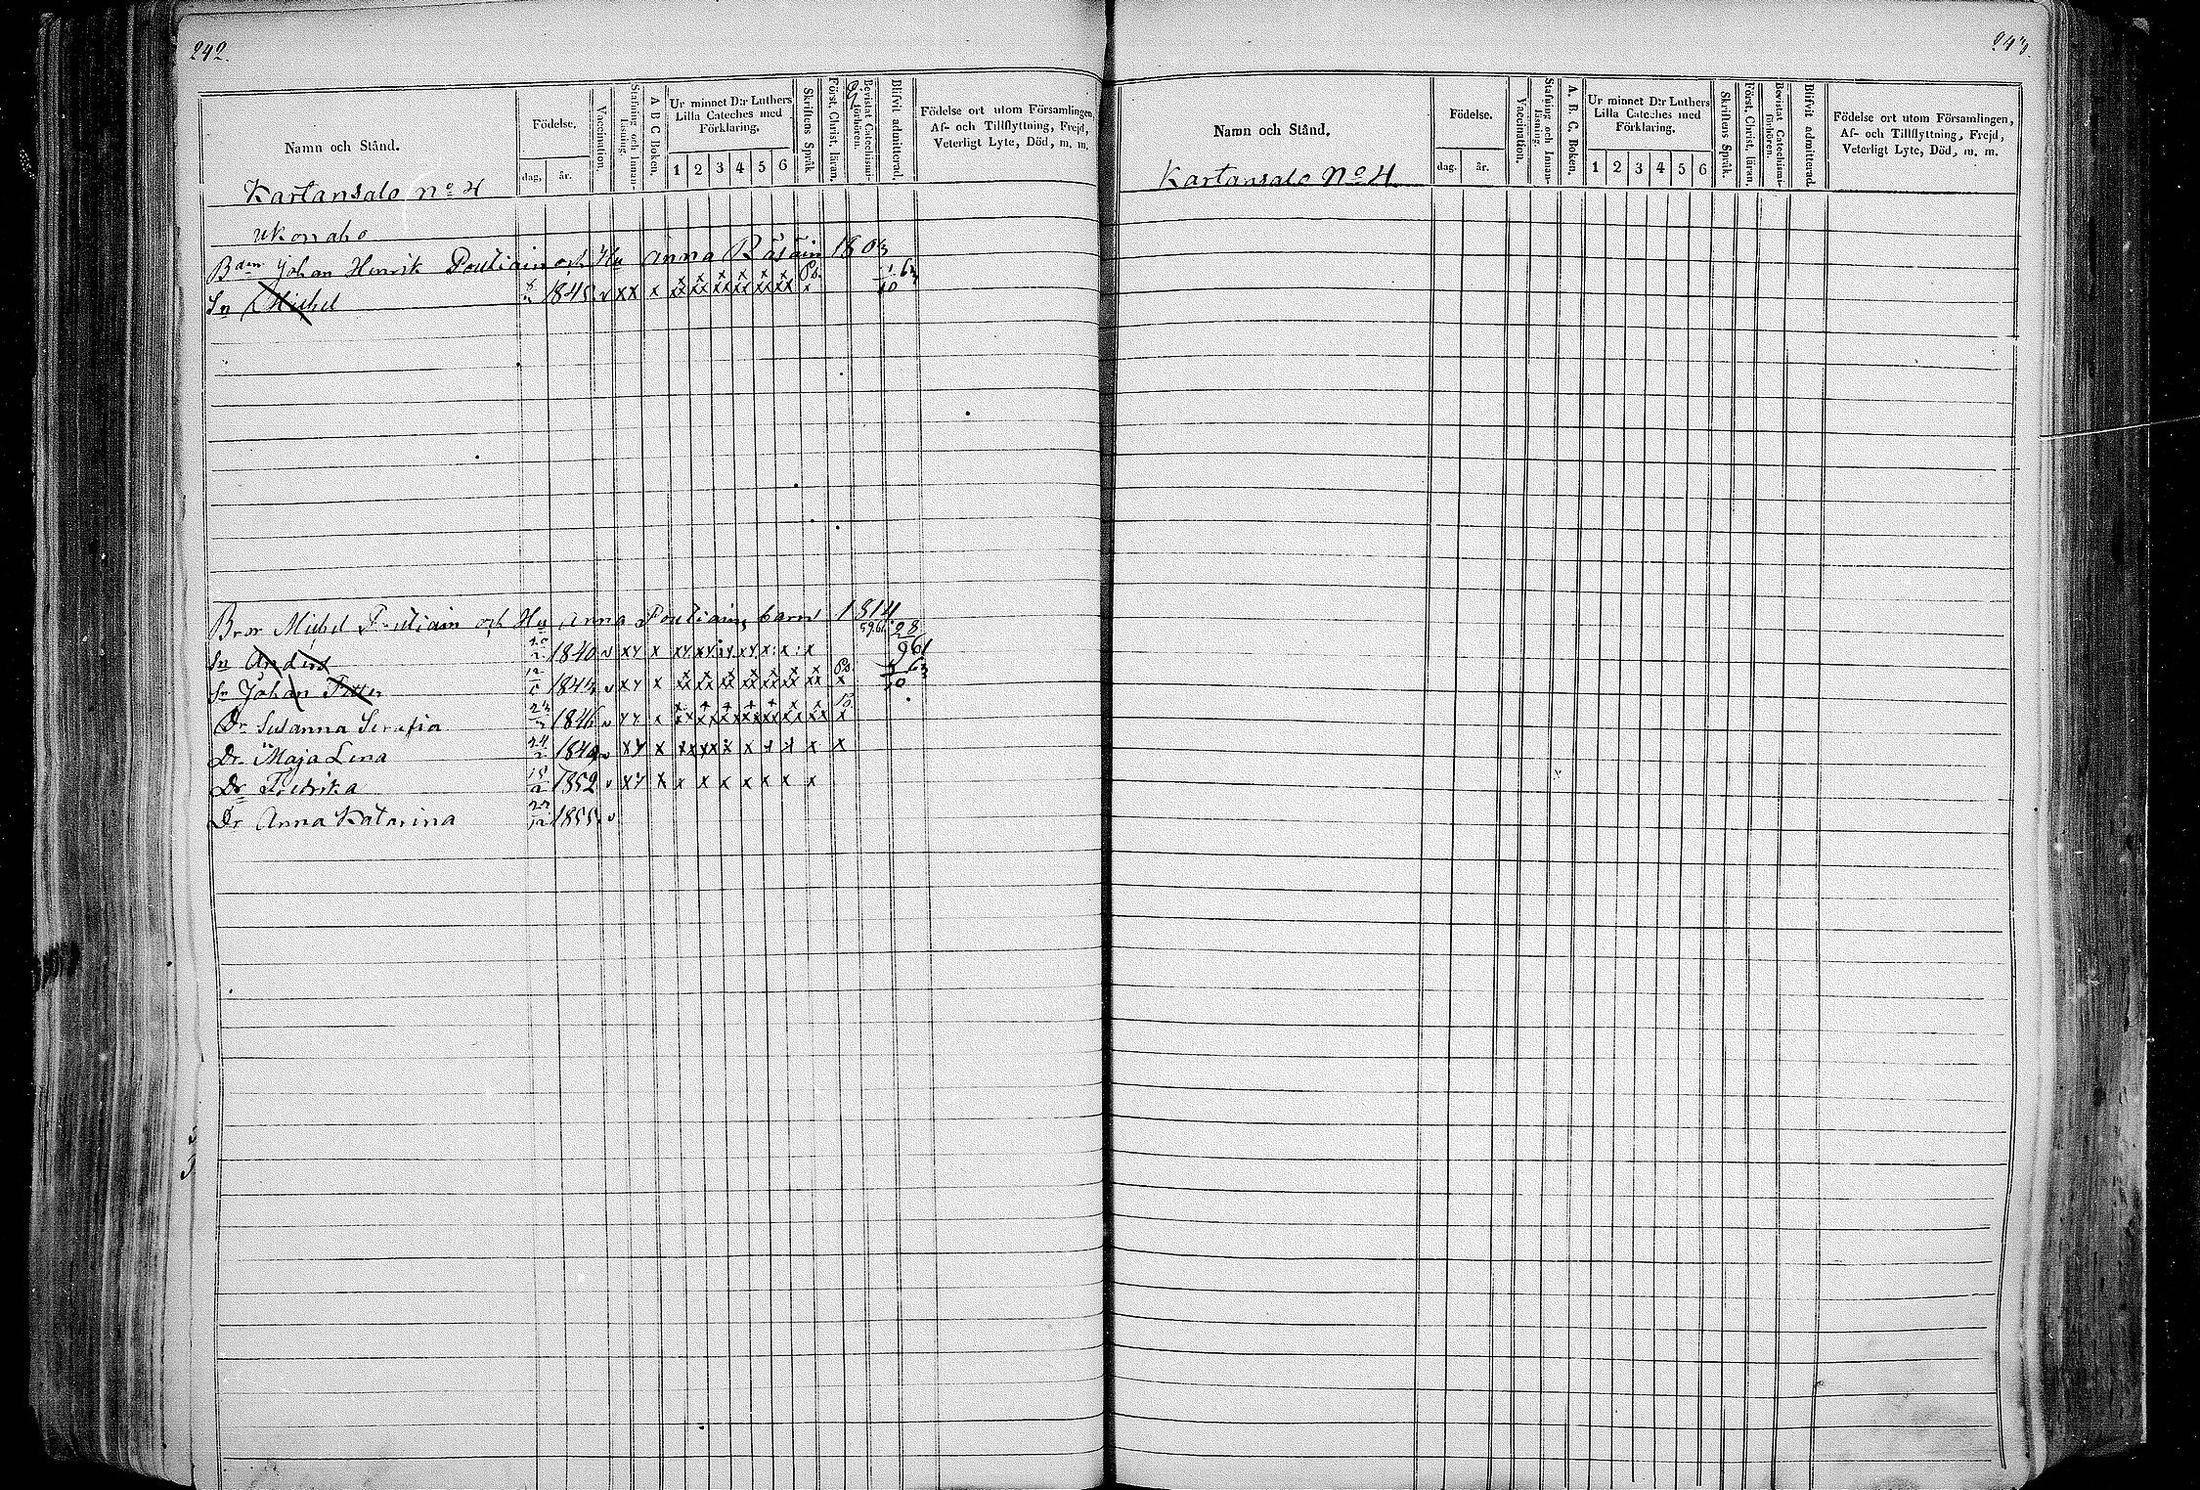 242.
Namn och Stånd.
Födelse.
dag,
år.
Vaccination.
Stafning och Innan-läsning.
A B C Boken.
Ur minnet D:r Luthers Lilla Cateches med Förklaring.
1 2 3 4 5 6
Skriftens Språk
Först. Christ. läran,
Bevistat Catechismi-förhören.
Blifvit admitterad
Födelse ort utom Församlingen, Af- och Tillflyttning, Frejd, Veterligt Lyte, Död, m. m.
Kartansalo No 4
Ukonaho
Bden Johan Henrik Poutiain och Hu Anna Räsäin 1803
Sn Michel 1845 v xx x
Bror Michel Poutiain och Hu Anna Poutiain, barn 1814
Sn Anders 1840 v
Sn Johan Petter
Dr Susanna Serafia 1846 v
Dr Maja Lena 1849 v
Dr Fredrika 1852 v
Dr Anna Katarina 1855 v
243
Namn och Stånd.
Födelse.
dag.
år.
Vaccination.
Stafning och Innan-läsning.
A. B. C. Boken,
Ur minnet D:r Luthers Lilla Cateches med Förklaring.
1 2 3 4 5 6
Skriftens Språk.
Först. Christ. läran,
Bevistat Catechismi-förhören.
Blifvit admitterad.
Födelse ort utom Församlingen, Af- och Tillflyttning, Frejd, Veterligt Lyte, Död, m. m.
Kartansalo No 4.